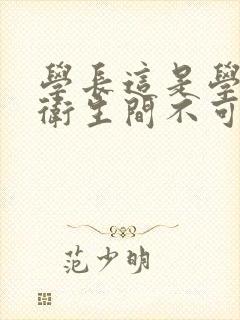 學長這是學
衛生間不可
范少明